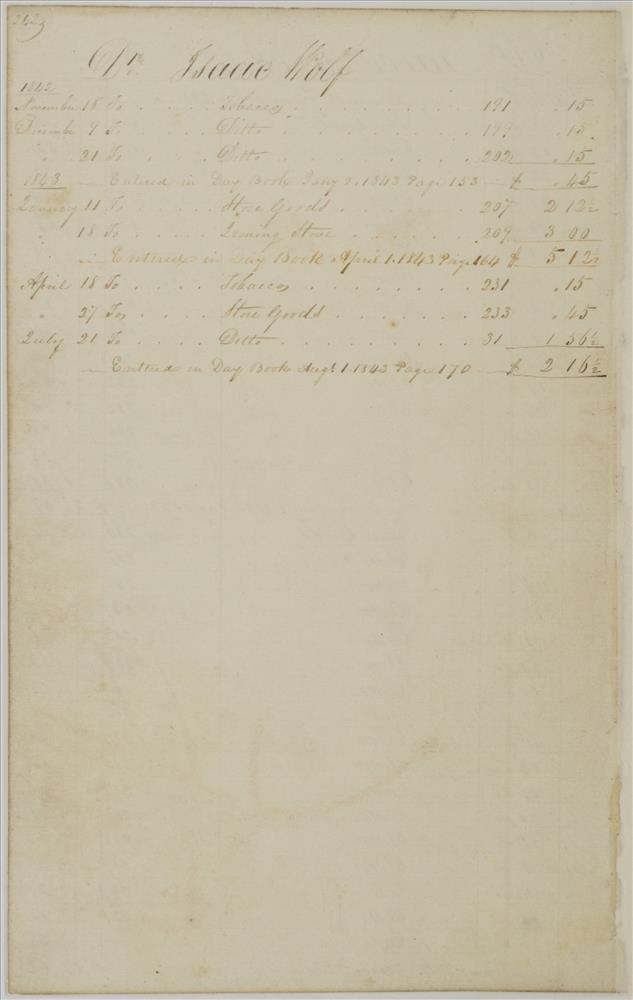 Dr. Isaac Wolf
1842
November 18 To . . . . Tobacco . . . . . . . . . 191 . 15
December 9 To . . . . Ditto . . . . . . . . . 199 . 15
" 31 To . . . . Ditto . . . . . . . . . 202 . 15
1843 — Entered in Day Book Jany 2. 1843 Page 153 — $ . 45
January 11 To . . . . Store Goods . . . . . . . 207 2 12½
" 18 To . . . . Store . . . . . . . 209 3 00
— Entered in Day Book April 1. 1843 Page 164 $ 5 12½
April 18 To . . . . Tobacco . . . . . . . . 231 . 15
" 27 To . . . . Store Goods . . . . . . . 233 . 45
July 21 To . . . . Ditto . . . . . . . . . 31 1 56½
— Entred in Day Book Augt 1. 1843 Page 170 — $ 2 16½